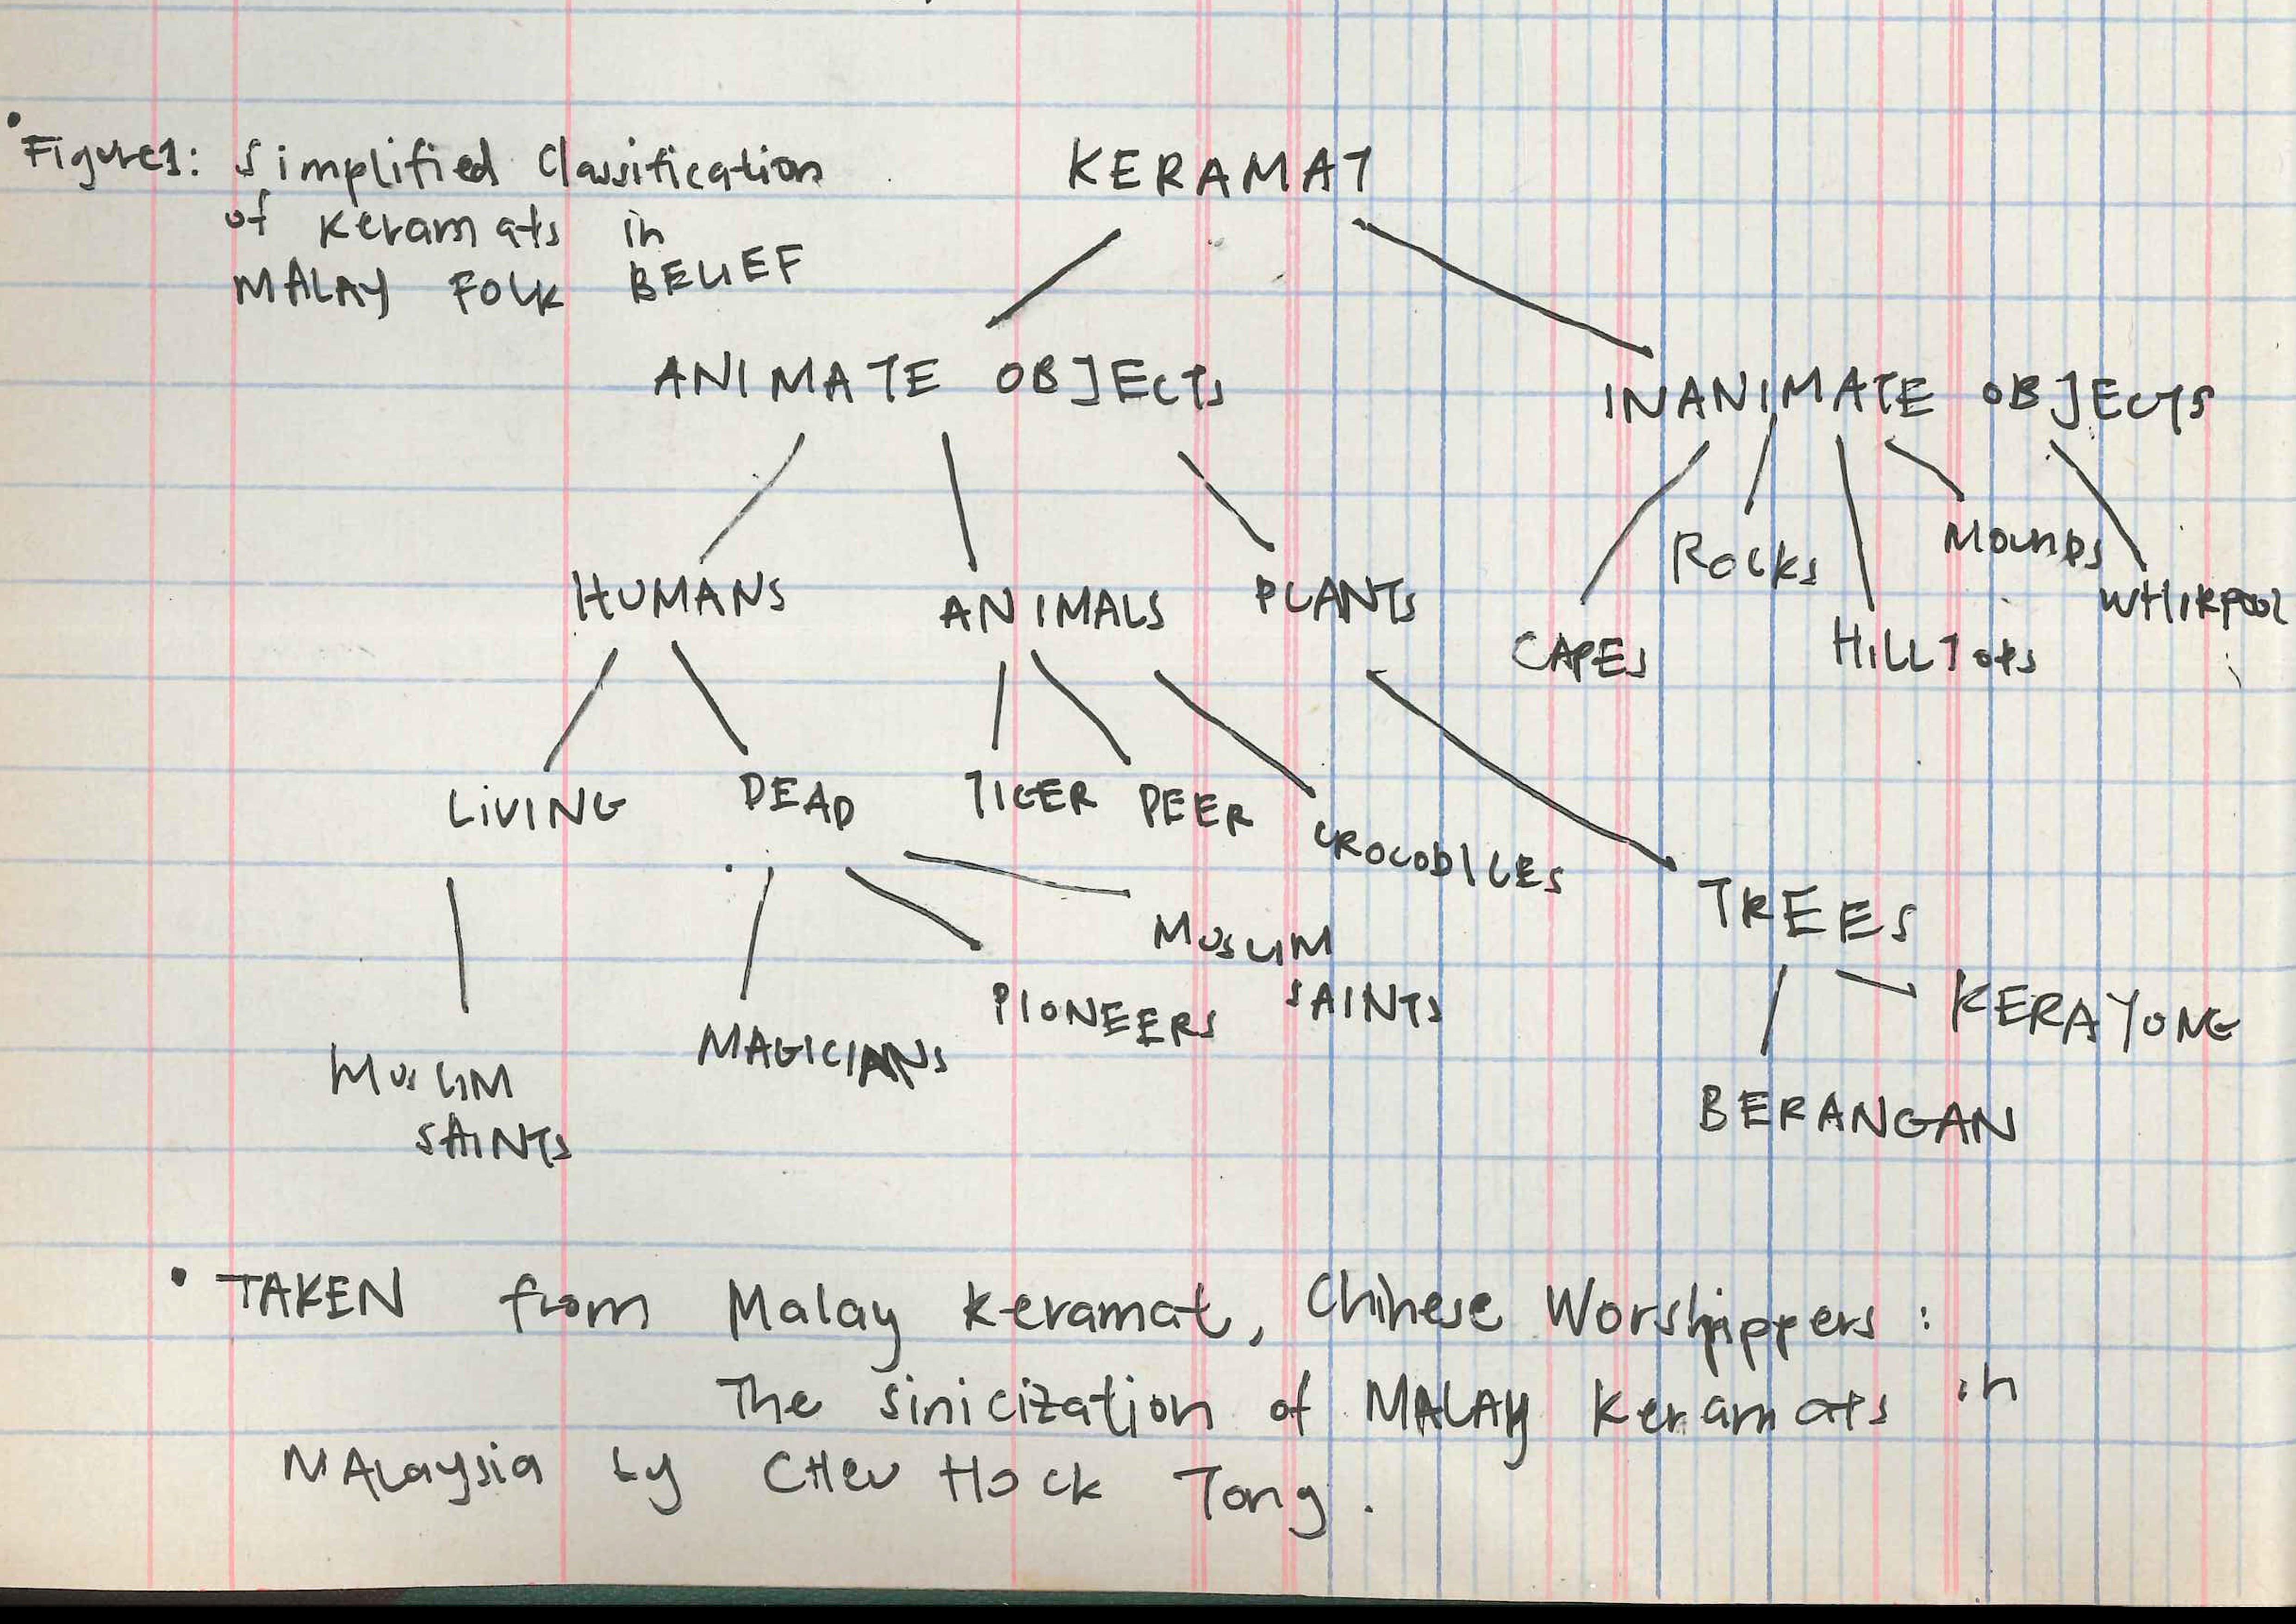 Figure1: Simplified Classification
of keramats in
MALAY FOLK BELIEF
KERAMAT
ANIMATE OBJECTS
INANIMATE OBJECTS
HUMANS
ANIMALS
PLANTS
CAPES
ROCKS
HILLTOPS
MOUNDS
WHIRPOOL
LIVING
DEAD
TIGER
DEER
CROCODILES
TREES
MUSLIM
SAINTS
MAGICIANS
PIONEERS
MUSLIM
SAINTS
BERANGAN
KERAYONG
• TAKEN from Malay Keramat, Chinese Worshippers:
The Sinicization of MALAY Keramats in
MALaysia by CHeu Hock Tong.